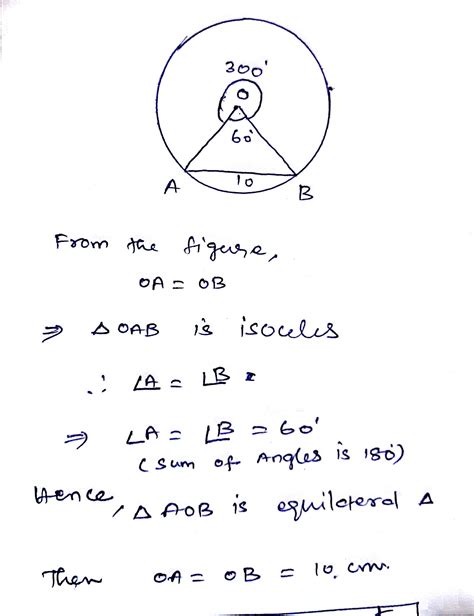 300'
O
60'
10
A
B
From the figure,
OA = OB
⇒ △OAB is isoceles
∴ ∠A = ∠B
⇒ ∠A = ∠B = 60'
(sum of Angles is 180)
Hence, △AOB is equilateral △
Then OA = OB = 10. cm.